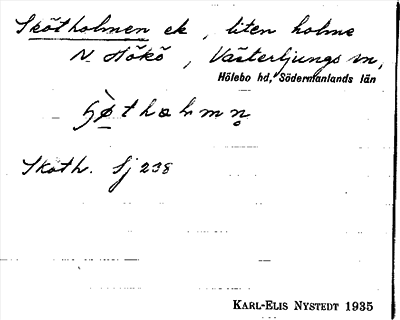 Skötholmen ek, liten holme
N. Hökö, Västerljungs sn,
Hölebo hd, Södermanlands län
Sköth. Sj 238
KARL-ELIS NYSTEDT 1935